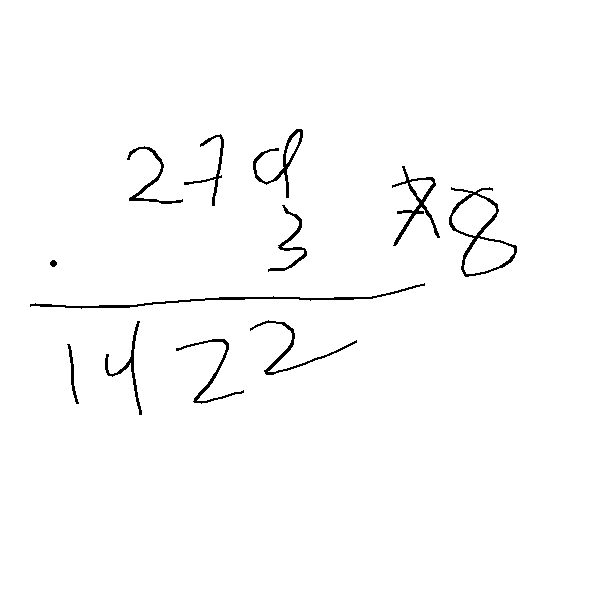 279
. 3 78
1422